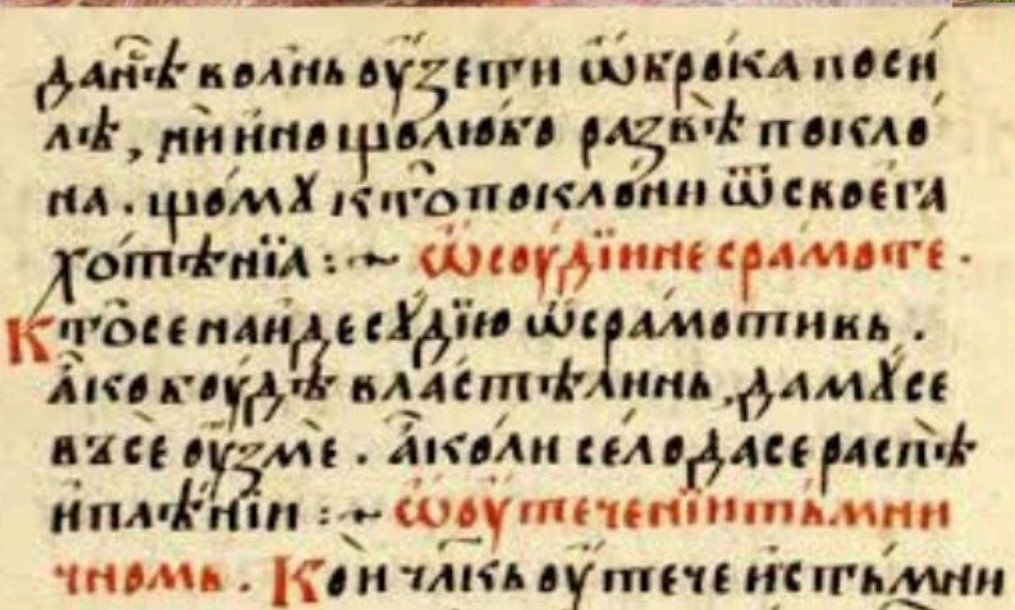 да нѣ волнь ѹзети ѿкрока поси
лѣ, ни ино що любо развѣ покло
на. що мꙋ кто поклони ѿ своега
хотѣнїа :~ ѡ соудїи не срамоте.
Кто се наиде сꙋдїю ѡсрамотивь.
ако коудѣ властѣлинь, да мꙋ се
въсе оузме. ако ли село да се распѣ
и плѣнїи :~ ѡ оутеченїи тьмни
чномь. Кои члкь оутече ис тьмни